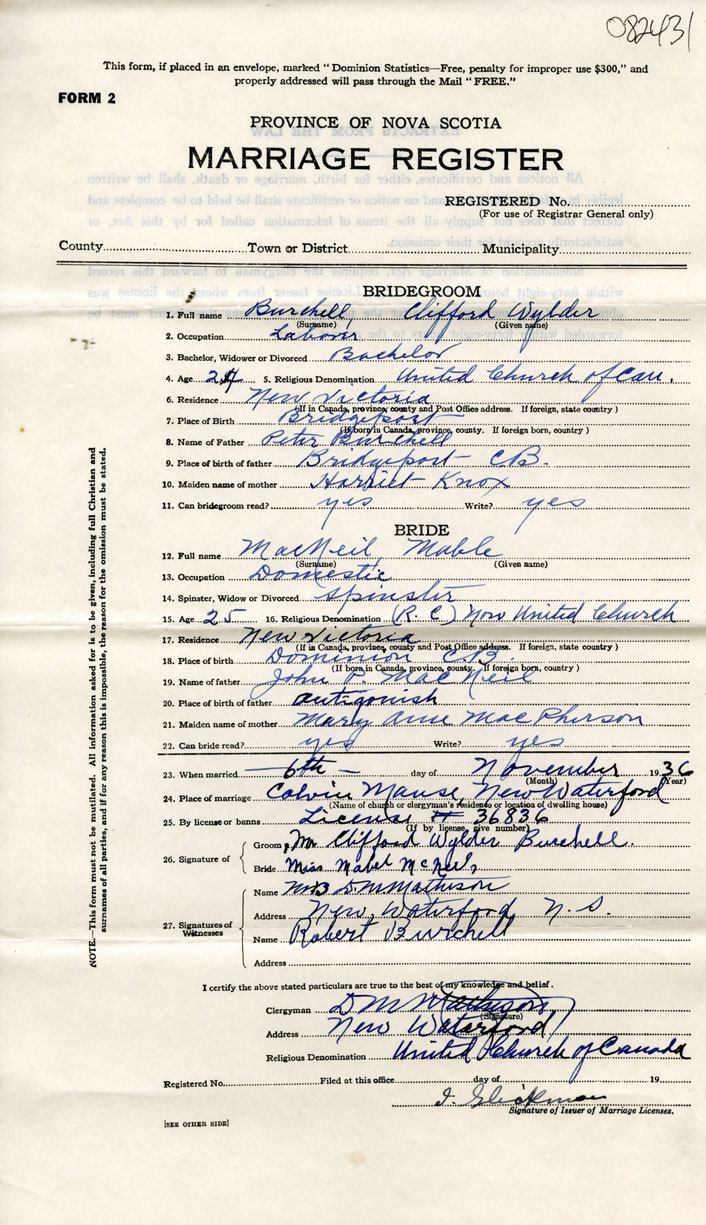 082431
This form, if placed in an envelope, marked "Dominion Statistics—Free, penalty for improper use $300," and
properly addressed will pass through the Mail "FREE."
FORM 2
PROVINCE OF NOVA SCOTIA
MARRIAGE REGISTER
REGISTERED No.
(For use of Registrar General only)
County Town or District Municipality
BRIDEGROOM
1. Full name Burchell, Clifford Wylder
(Surname) (Given name)
2. Occupation Labour
3. Bachelor, Widower or Divorced Bachelor
4. Age 24 5. Religious Denomination United Church of Can.
6. Residence New Victoria
(If in Canada, province, county and Post Office address. If foreign, state country)
7. Place of Birth Bridgeport
(If born in Canada, province, county. If foreign born, country)
8. Name of Father Peter Burchell
9. Place of birth of father Bridgeport CB.
10. Maiden name of mother Harriet Knox
11. Can bridegroom read? yes Write? yes
BRIDE
12. Full name MacNeil, Mable
(Surname) (Given name)
13. Occupation Domestic
14. Spinster, Widow or Divorced Spinster
15. Age 25 16. Religious Denomination (R.C) Now United Church
17. Residence New Victoria
(If in Canada, province, county and Post Office address. If foreign, state country)
18. Place of birth Dominion C.B.
(If born in Canada, province, county. If foreign born, country)
19. Name of father John P. MacNeil
20. Place of birth of father antigonish
21. Maiden name of mother Mary Ann MacPherson
22. Can bride read? yes Write? yes
23. When married 6th day of November 1936
(Month) (Year)
24. Place of marriage Calvin Manse, New Waterford
(Name of church or clergyman's residence or location of dwelling house)
25. By license or banns License # 36836
(If by license, give number)
26. Signature of
Groom Mr Clifford Wylder Burchell.
Bride Miss Mabel McNeil
27. Signatures of Witnesses
Name Mrs D M Mathison
Address New Waterford, N.S.
Name Robert Burchell
Address
I certify the above stated particulars are true to the best of my knowledge and belief.
Clergyman D M Mathison
(Signature)
Address New Waterford
Religious Denomination United Church of Canada
Registered No. Filed at this office day of 19
Signature of Issuer of Marriage Licenses.
[SEE OTHER SIDE]
NOTE.—This form must not be mutilated. All information asked for is to be given, including full Christian and
surnames of all parties, and if for any reason this is impossible, the reason for the omission must be stated.